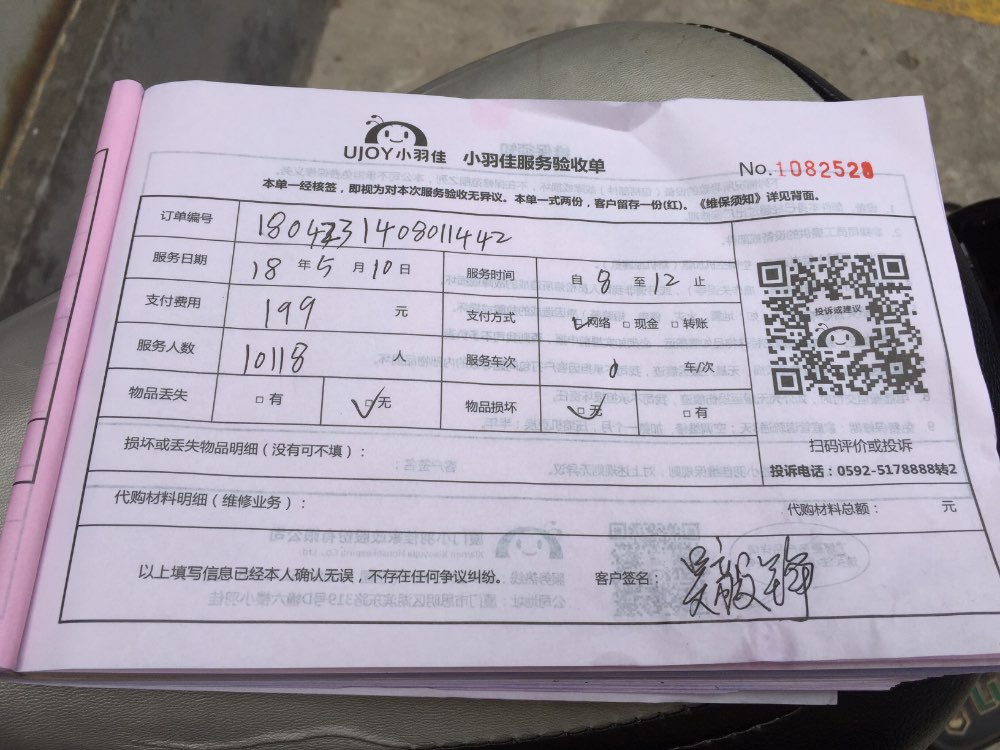 UJOY小羽佳 小羽佳服务验收单 No.1082528
本单一经核签，即视为对本次服务验收无异议。本单一式两份，客户留存一份(红)。《维保须知》详见背面。
订单编号
服务日期 18 年 5 月 10 日 服务时间 自 8 至 12 止
支付费用 199 元 支付方式 网络 现金 转账
服务人数 10118 人 服务车次 车/次
物品丢失 有 无 物品损坏 无 有
投诉或建议
扫码评价或投诉
投诉电话：0592-5178888转2
损坏或丢失物品明细（没有可不填）：
代购材料明细（维修业务）： 代购材料总额： 元
以上填写信息已经本人确认无误，不存在任何争议纠纷。 客户签名：